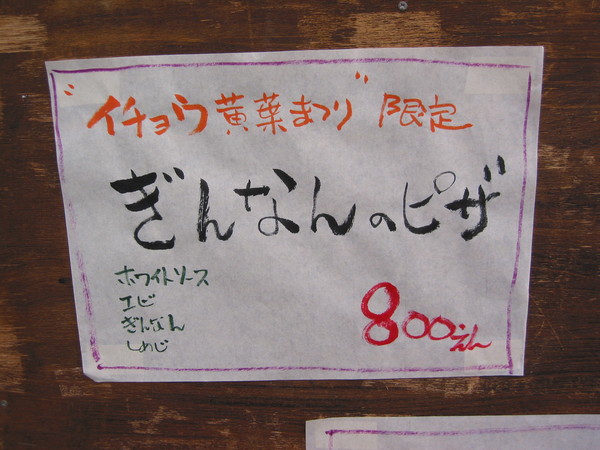 "イチョウ黄葉まつり"限定
ぎんなんのピザ
ホワイトソース
エビ
ぎんなん
しめじ
800えん